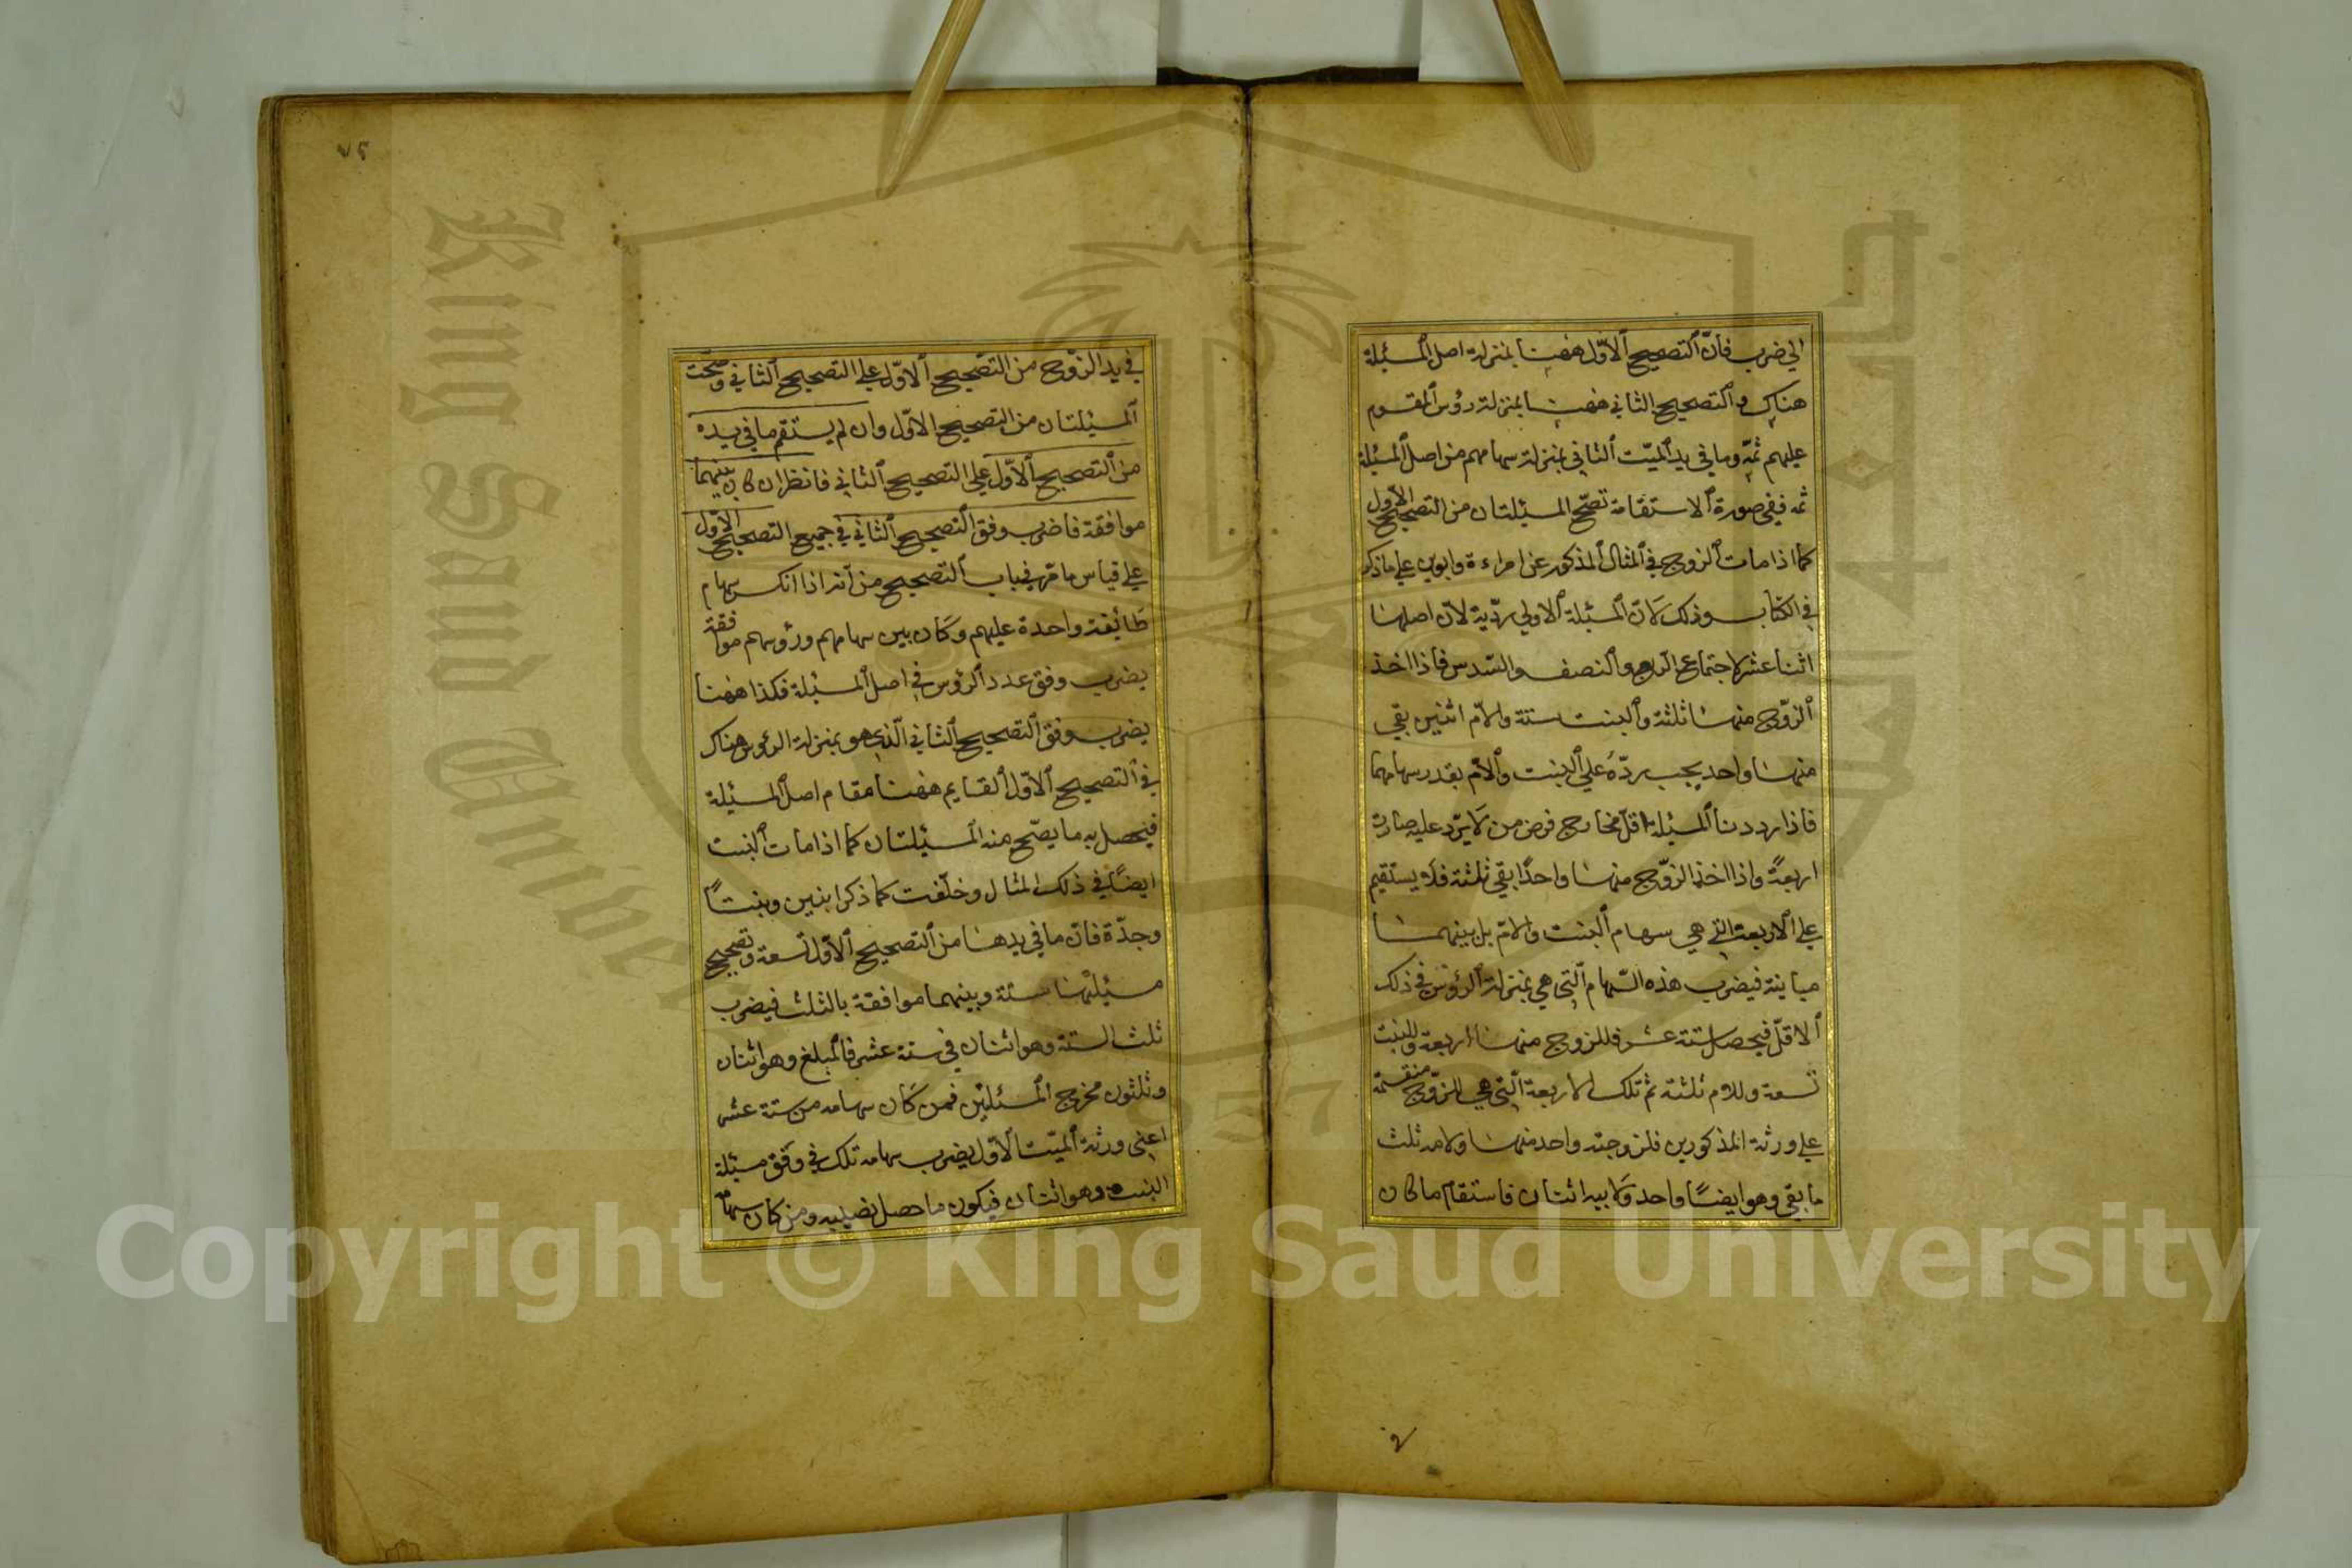 الي ضرب فانّ التصحيح الاوّل ههنا بمنزلة اصل المسئلة
هناك والتصحيح الثاني ههنا بمنزلة رؤس المقسوم
عليهم ثمّه وما في يد الميّت الثاني بمنزلة سهامهم من اصل المسئلة
ثمه ففي صورة الاستقامة تصّح المسئلتان من التصحيح الاول
كما اذا مات الزوج في المثال المذكور عن امراءة وابوين علي ما ذكر
في الكتاب وذلك لانّ المسئلة الاولي ردّية لانّ اصلها
اثنا عشر لاجتماع الربع والنصف والسّدس فاذا اخذ
الزوّج منها ثلثة والبنت ستة والامّ اثنين بقي
منها واحد يجب ردّهُ علي البنت والامّ بقدر سهامهما
فاذا رددنا المسئلة الي اقلّ مخارج فرض من لا يّرد عليه صارت
اربعةً واذا اخذ الزوّج منها واحدًا بقي ثلثة فلا يستقيم
علي الاربعة التي هي سهام البنت والامّ بل بينهما
مباينة فيضرب هذه السّهام التي هي بمنزلة الرؤس في ذلك
الاقلّ فيحصل ستة عشر فللزوج منها اربعة وللبنت
تسعة وللام ثلثة ثم تلك الاربعة التي هي للزوّج منقسمة
علي ورثة المذكورين فلزوجته واحد منها ولامه ثلث
ما بقي وهو ايضًا واحد ولابيه اثنان فاستقام ما كان
في
٧٥
في يد الزوّج من التصّحيح الاوّل علي التصحيح الثاني وصّحت
المسئلتان من التصحيح الاوّل وان لم يستقم ما في يده
من التصحيح الاوّل علي التصحيح الثاني فانظر ان كان بينهما
موافقة فاضرب وفق التصحيح الثاني في جميع التصحيح الاوّل
علي قياس ما مّر في باب التصحيح من انّه اذا انكسر سهام
طائفة واحدة عليهم وكان بين سهامهم ورؤسهم موافقة
يضرب وفق عدد الرؤس في اصل المسئلة فكذا ههنا
يضرب وفق التصحيح الثاني الّذي هو بمنزلة الرؤس هناك
في التصحيح الاوّل القايم ههنا مقام اصل المسئلة
فيحصل به ما يصّح منه المسئلتان كما اذا مات البنت
ايضًا في ذلك المثال وخلّفت كما ذكر ابنين وبنتًا
وجدّة فانّ ما في يدها من التصحيح الاوّل تسعة وتصحيح
مسئلتها ستة وبينهما موافقة بالثلث فيضرب
ثلث الستة وهو اثنان في ستة عشر فالمبلغ وهو اثنان
وثلثون مخرج المسئلتين فمن كان سهامه من ستة عشر
اعني ورثة الميّت الاوّل يضرب سهامه تلك في وفق مسئلة
البنت وهو اثنان فيكون ما حصل نصيبه ومن كان سهامه
King Saud Univer
1957
Copyright © King Saud University